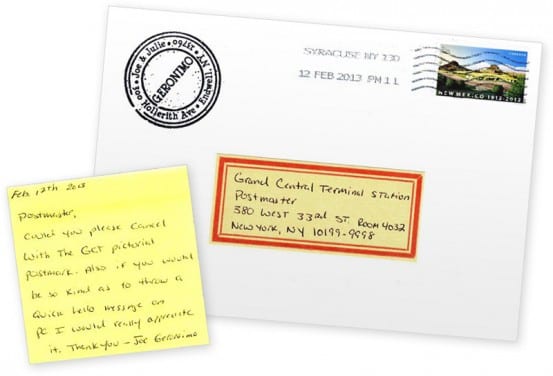 Joe & Julie
300 Hollerith Ave • Endwell, NY • 13760
GERONIMO
SYRACUSE NY 130
12 FEB 2013 PM 1 L
NEW MEXICO 1912-2012
Grand Central Terminal Station
Postmaster
380 West 33rd St. Room 4032
New York, NY 10199-9998
Feb 12th 2013
Postmaster,
Could you please cancel
with the GCT pictorial
postmark. Also if you would
be so kind as to throw a
quick hello message on
PC I would really appreciate
it. Thank you – Joe Geronimo